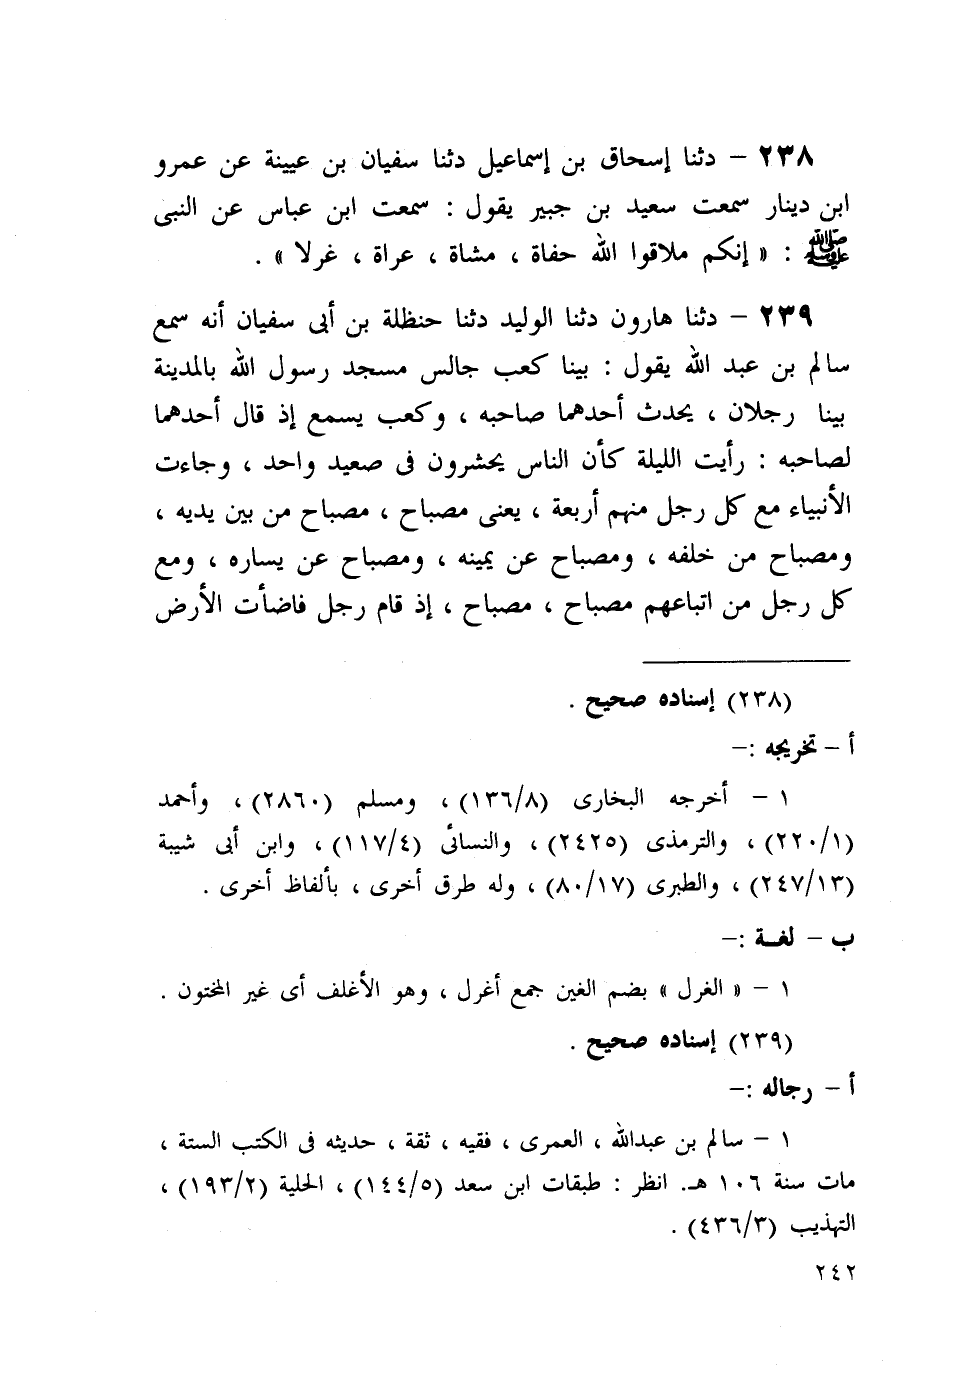 ٢٣٨ – دثنا إسحاق بن إسماعيل دثنا سفيان بن عيينة عن عمرو
ابن دينار سمعت سعيد بن جبير يقول : سمعت ابن عباس عن النبى
ﷺ : « إنكم ملاقوا الله حفاة ، مشاة ، عراة ، غرلا » .
٢٣٩ – دثنا هارون دثنا الوليد دثنا حنظلة بن أبى سفيان أنه سمع
سالم بن عبد الله يقول : بينا كعب جالس مسجد رسول الله بالمدينة
بينا رجلان ، يحدث أحدهما صاحبه ، وكعب يسمع إذ قال أحدهما
لصاحبه : رأيت الليلة كأن الناس يحشرون فى صعيد واحد ، وجاءت
الأنبياء مع كل رجل منهم أربعة ، يعنى مصباح ، مصباح من بين يديه ،
ومصباح من خلفه ، ومصباح عن يمينه ، ومصباح عن يساره ، ومع
كل رجل من اتباعهم مصباح ، مصباح ، إذ قام رجل فاضأت الأرض
(٢٣٨) إسناده صحيح .
أ – تخريجه :–
١ – أخرجه البخارى (١٣٦/٨) ، ومسلم (٢٨٦٠) ، وأحمد
(٢٢٠/١) ، والترمذى (٢٤٢٥) ، والنسائى (١١٧/٤) ، وابن أبى شيبة
(٢٤٧/١٣) ، والطبرى (٨٠/١٧) ، وله طرق أخرى ، بألفاظ أخرى .
ب – لغة :–
١ – « الغرل » بضم الغين جمع أغرل ، وهو الأغلف أى غير المختون .
(٢٣٩) إسناده صحيح .
أ – رجاله :–
١ – سالم بن عبدالله ، العمرى ، فقيه ، ثقة ، حديثه فى الكتب الستة ،
مات سنة ١٠٦ هـ. انظر : طبقات ابن سعد (١٤٤/٥) ، الحلية (١٩٣/٢) ،
التهذيب (٤٣٦/٣) .
٢٤٢